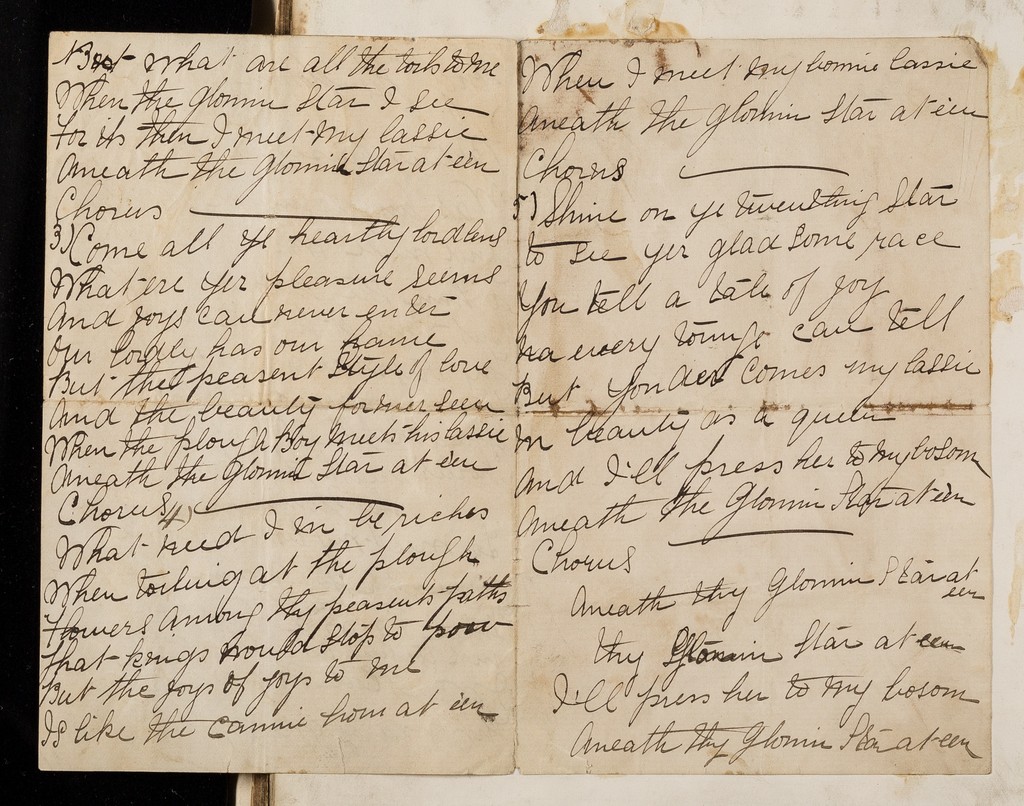 But what are all the toils to me
When the Glomin Star I see
For its then I meet my lassie
Aneath the Glomin Star at een
Chorus
3) Come all ye hearthy lordlens
What ere yer pleasure seems
And joys can never enter
Our lordly has our hame
But the peasent Style of love
And the beauty former seen
When the plough Boy meets his lassie
Aneath the Glomin Star at een
Chorus 4)
What need I in be riches
When toiling at the plough
Flowers among thy peasents paths
That kings would stop to pow
But the joys of joys to me
Is like the cannie hour at een
When I meet my bonnie lassie
Aneath the Glomin Star at een
Chorus
5) Shine on ye Star
to see yer glad some race
You tell a tale of joy
na every tounge can tell
But yonder comes my lassie
in beauty as a queen
And I'll press her to my bosom
Aneath the Glomin Star at een
Chorus
Aneath thy Glomin Star at een
thy Glomin Star at een
I'll press her to my bosom
Aneath thy Glomin Star at een